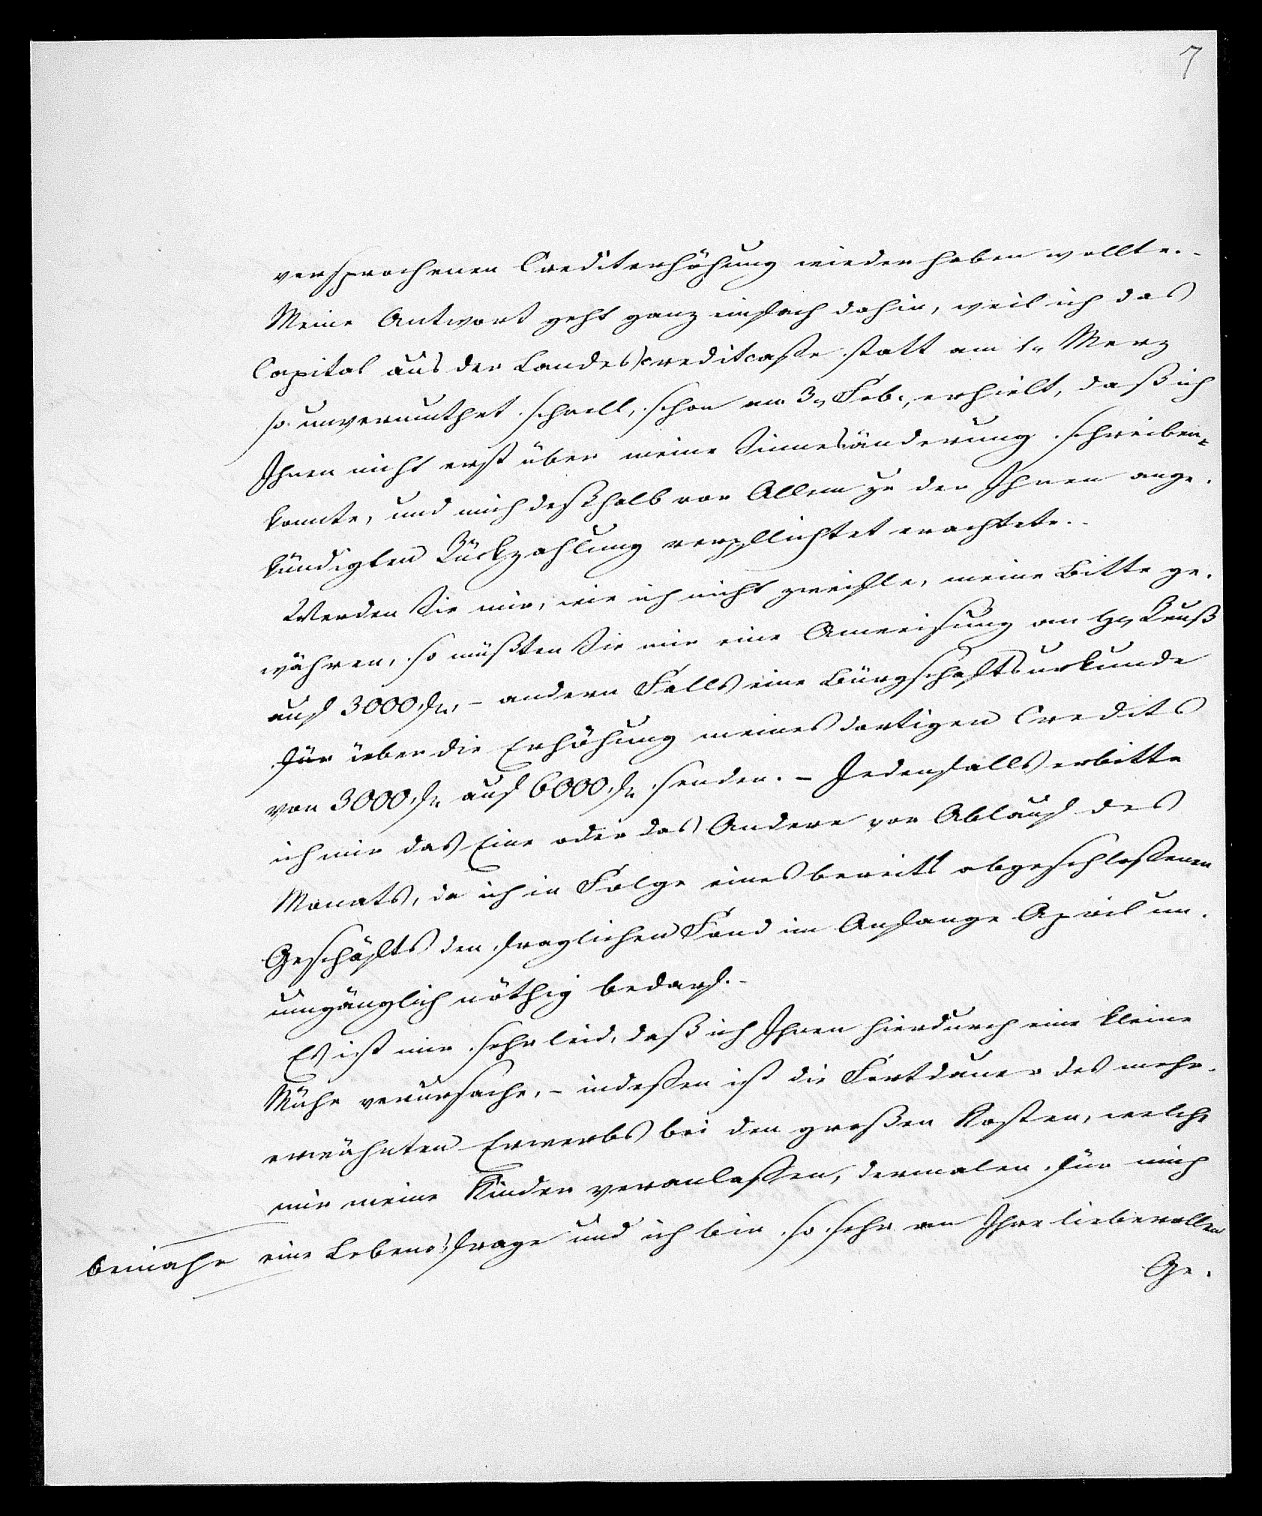 7
versprochenen Crediterhöhung wieder haben wollte. -
Meine Antwort geht ganz einfach dahin, weil ich das
Capital aus der Landescreditcasse statt am 1n Merz
so unvermuthet schnell, schon am 3n Feb., erhielt, daß ich
Ihnen nicht erst über meine Sinnesänderung schreiben
konnte, und mich deßhalb vor Allem zu der Ihnen ange-
kündigten Rückzahlung verpflichtet erachtete. -
Werden Sie mir, wie ich nicht zweifle, meine Bitte ge-
währen, so müßten Sie mir eine Anweisung an Hn Reuß
auf 3000 fn, - andern Falls eine Bürgschaftsurkunde
für über die Erhöhung meines dortigen Credits
von 3000 fn auf 6000 fn senden. - Jedenfalls erbitte
ich mir das Eine oder das Andere vor Ablauf des
Monats, da ich in Folge eines bereits abgeschloßenen
Geschäfts den fraglichen Fond im Anfange April un-
umgänglich nöthig bedarf. -
Es ist mir sehr leid, daß ich Ihnen hierdurch eine kleine
Mühe verursache, - indeßen ist die Fortdauer des mehr-
erwähnten Erwerbs bei den großen Kosten, welche
mir meine Kinder veranlaßen, dermalen für mich
beinahe eine Lebensfrage und ich bin so sehr an Ihre liebevollen
Ge-